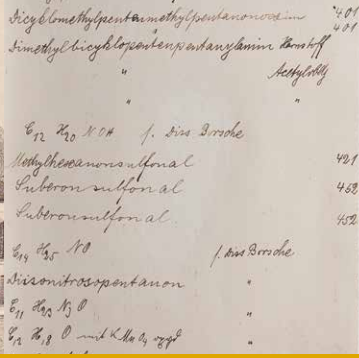 Dicyklomethylpentamethylpentanonoxim 401
" 401
Dimethylbicyklopentenpentanylamin Harnstoff
" Acetylvbdg
" "
C12 H20 NOH f. Diss Borsche
Methylhexanonsulfonal 421
Suberonsulfonal 452
Suberonsulfonal 452
C14 H25 NO f. Diss Borsche
Diisonitrosopentanon "
C11 H23 N3 O "
C12 H18 O mit K MnO4 oxyd "